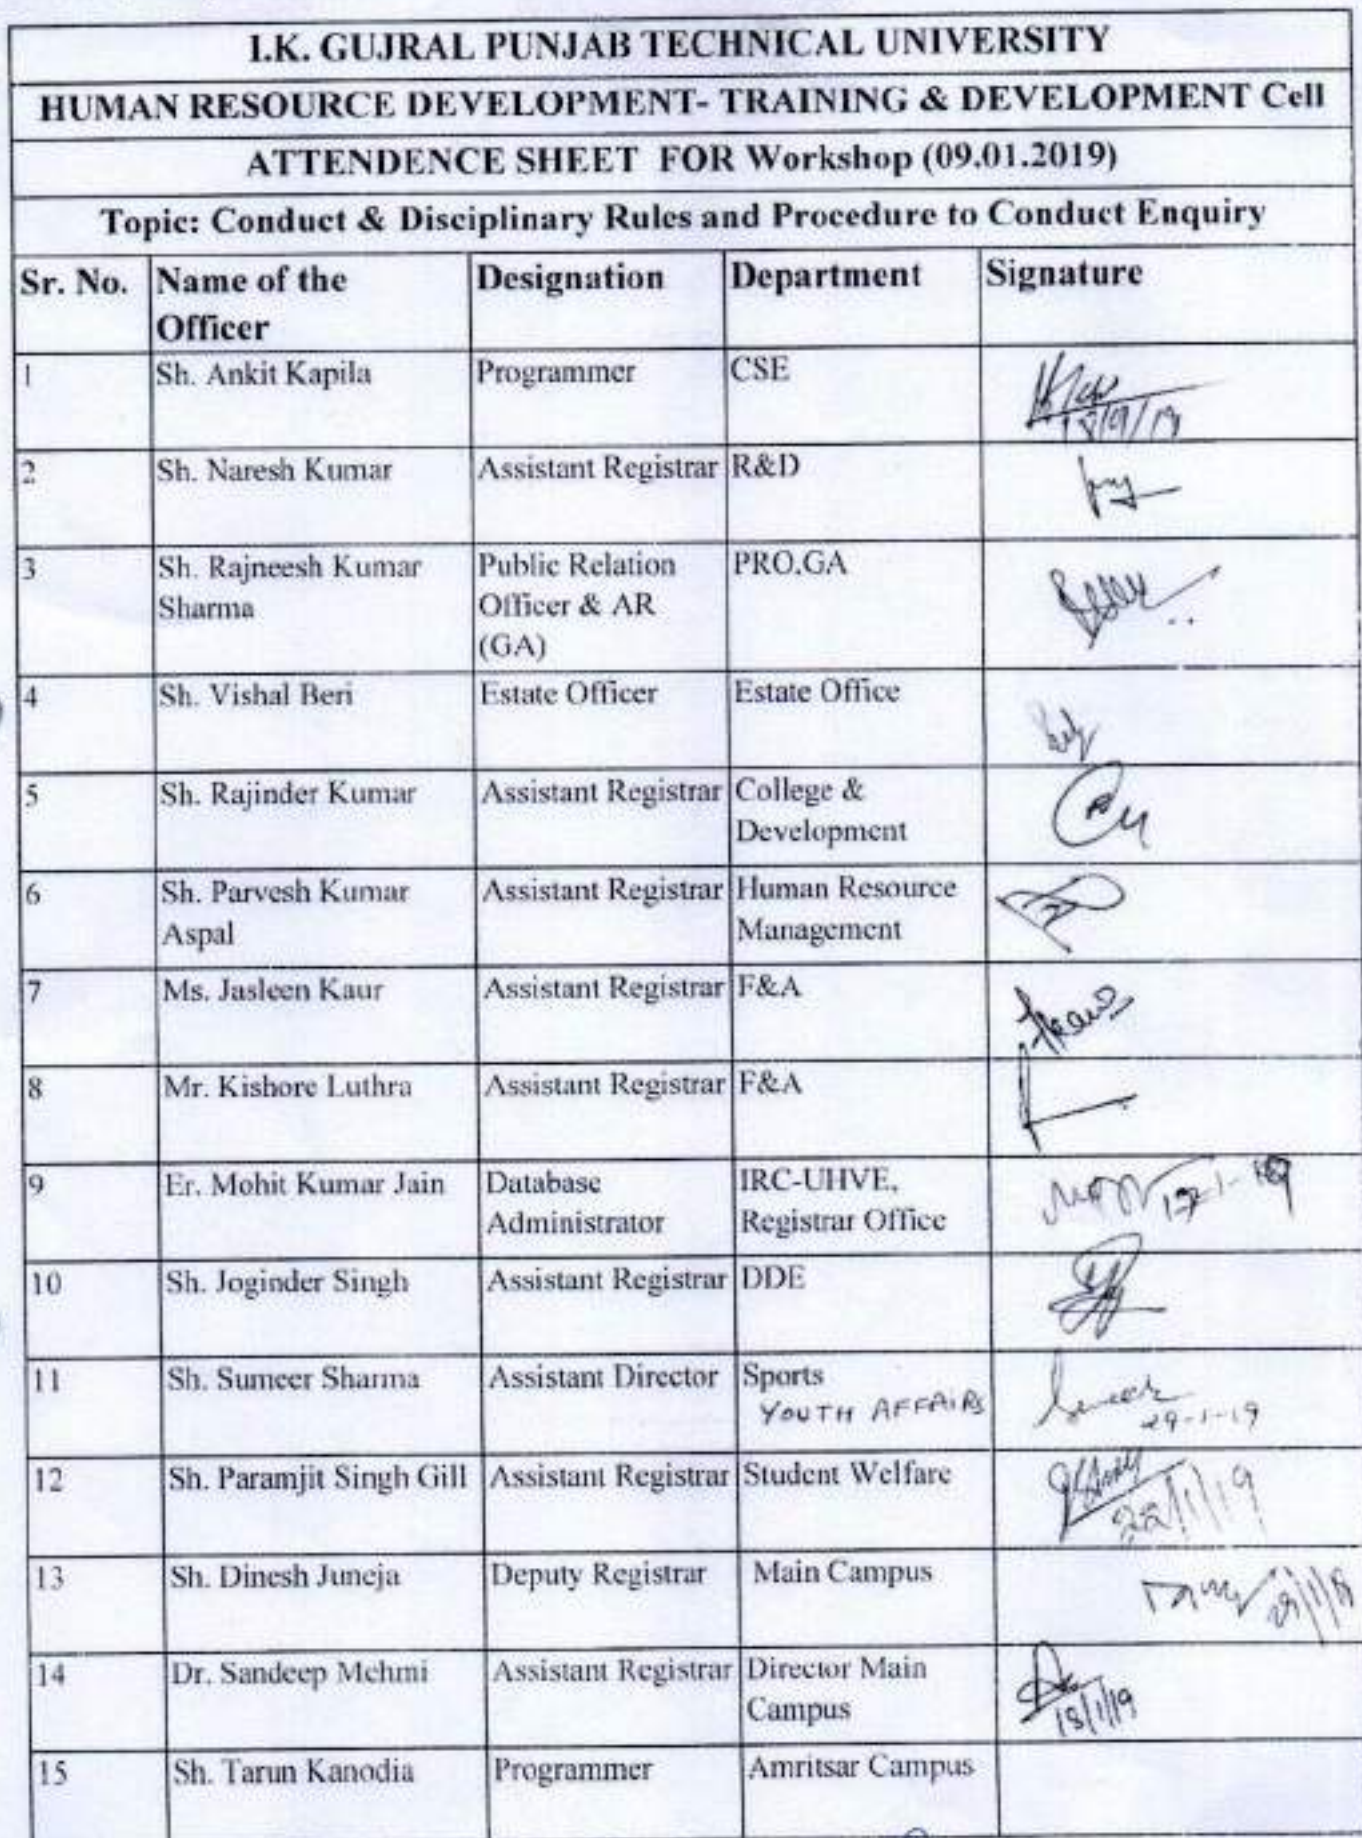 I.K. GUJRAL PUNJAB TECHNICAL UNIVERSITY
HUMAN RESOURCE DEVELOPMENT- TRAINING & DEVELOPMENT Cell
ATTENDENCE SHEET FOR Workshop (09.01.2019)
Topic: Conduct & Disciplinary Rules and Procedure to Conduct Enquiry
Sr. No. Name of the Designation Department Signature
Officer
1 Sh. Ankit Kapila Programmer CSE
2 Sh. Naresh Kumar Assistant Registrar R&D
3 Sh. Rajneesh Kumar Public Relation PRO,GA
Sharma Officer & AR
(GA)
4 Sh. Vishal Beri Estate Officer Estate Office
5 Sh. Rajinder Kumar Assistant Registrar College &
Development
6 Sh. Parvesh Kumar Assistant Registrar Human Resource
Aspal Management
7 Ms. Jasleen Kaur Assistant Registrar F&A
8 Mr. Kishore Luthra Assistant Registrar F&A
9 Er. Mohit Kumar Jain Database IRC-UHVE,
Administrator Registrar Office
10 Sh. Joginder Singh Assistant Registrar DDE
11 Sh. Sumeer Sharma Assistant Director Sports
YOUTH AFFAIRS 29-1-19
12 Sh. Paramjit Singh Gill Assistant Registrar Student Welfare
22/1/19
13 Sh. Dinesh Juneja Deputy Registrar Main Campus
14 Dr. Sandeep Mehmi Assistant Registrar Director Main
Campus 18/1/19
15 Sh. Tarun Kanodia Programmer Amritsar Campus